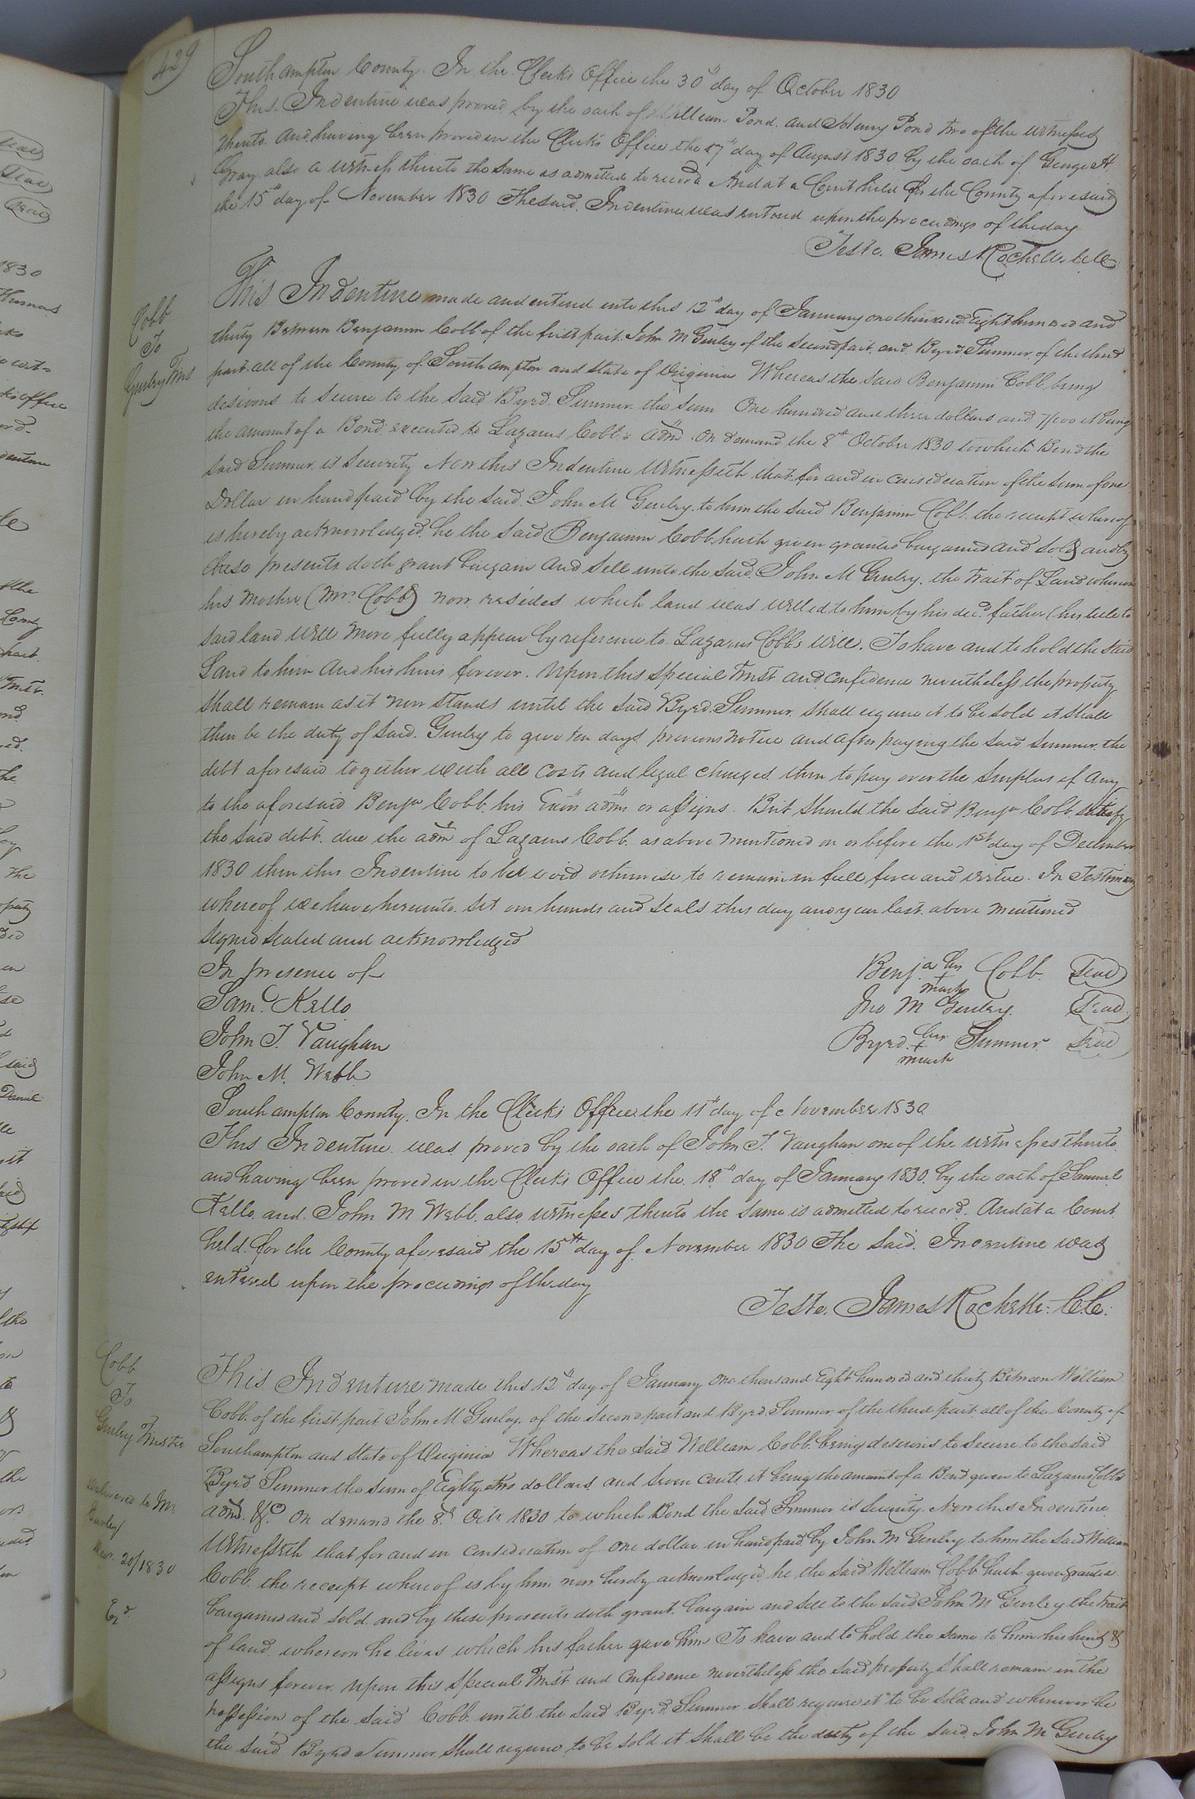 429
Southampton County. In the Clerks Office the 30th day of October 1830
This Indenture was proved by the oath of William Pond and Henry Pond two of the witnesses
thereto. And having been proved in the Clerks Office the 17th day of August 1830 by the oath of George H.
Gray also a witness thereto the same is admitted to record And at a Court held for the County aforesaid
the 15th day of November 1830 The said Indenture was entered upon the proceedings of the day
Teste. James Rochelle C.C.
Cobb
To
Gurley Trus
This Indenture made and entered into this 12th day of January one thousand Eight hundred and
thirty Between Benjamin Cobb of the first part. John M Gurley of the second part, and Byrd Sumner of the third
part all of the County of Southampton and State of Virginia Whereas the said Benjamin Cobb, being
desirous to secure to the said Byrd Sumner the sum One hundred and three dollars and 7/100 it being
the amount of a Bond executed to Lazarus Cobb's admr. on demand the 8th October 1830 to which Bond the
said Sumner is security Now this Indenture Witnesseth that for and in consideration of the sum of one
Dollar in hand paid by the said John M Gurley to him the said Benjamin Cobb, the receipt whereof
is hereby acknowledged. he the said Benjamin Cobb hath given granted bargained and sold and by
these presents doth grant bargain and sell unto the said John M Gurley, the tract of Land whereon
his Mother (Mrs Cobb) now resides which land was willed to him by his decd. father (his title to
said land will more fully appear by reference to Lazarus Cobbs will. To have and to hold the said
Land to him and his heirs forever. Upon this special trust and confidence nevertheless the property
shall remain as it now stands until the said Byrd Sumner shall require it to be sold it shall
then be the duty of said Gurley to give ten days previous notice and after paying the said Sumner the
debt aforesaid together with all costs and legal charges then to pay over the surplus if any
to the aforesaid Benja Cobb. his Exors admrs or assigns. But should the said Benja Cobb satisfy
the said debt due the admr of Lazarus Cobb. as above mentioned on or before the 1st day of December
1830 then this Indenture to be void otherwise to remain in full force and virtue. In Testimony
whereof we have hereunto set our hands and seals this day and year last above mentioned
Signed sealed and acknowledged
In presence of
Benja his Cobb. Seal
+ mark
Saml Kello
Jno M Gurley. Seal
John T. Vaughan
Byrd his Sumner Seal
+ mark
John M. Webb
Southampton County. In the Clerks Office the 11th day of November 1830
This Indenture was proved by the oath of John T. Vaughan one of the witnesses thereto
and having been proved in the Clerks Office the 18th day of January 1830. by the oath of Samuel
Kello and John M Webb. also witnesses thereto the same is admitted to record. And at a Court
held for the County aforesaid the 15th day of November 1830 The said Indenture was
entered upon the proceedings of the day
Teste. James Rochelle. C.C.
Cobb
To
Gurley Trustee
Delivered to Mr
Gurley
20/1830
This Indenture made this 12th day of January one thousand Eight hundred and thirty Between William
Cobb. of the first part John M Gurley, of the second part and Byrd Sumner of the third part. all of the County of
Southampton and State of Virginia Whereas the said William Cobb being desirous to secure to the said
Byrd Sumner the sum of Eighty two dollars and seven cents it being the amount of a Bond given to Lazarus Cobbs
admr. &c. on demand the 8th Octr 1830 to which Bond the said Sumner is security Now this Indenture
Witnesseth that for and in consideration of one dollar in hand paid by John M Gurley to him the said William
Cobb the receipt whereof is by him now hereby acknowledged he, the said William Cobb hath given granted
bargained and sold. and by these presents doth grant. bargain and sell to the said John M Gurley the tract
of land whereon he lives which his father gave him To have and to hold the same to him his heirs &
assigns forever. Upon this special Trust and confidence nevertheless the said property shall remain in the
possession of the said Cobb until the said Byrd Sumner shall require it to be sold and whenever he
the said Byrd Sumner shall require to be sold it shall be the duty of the said John M Gurley